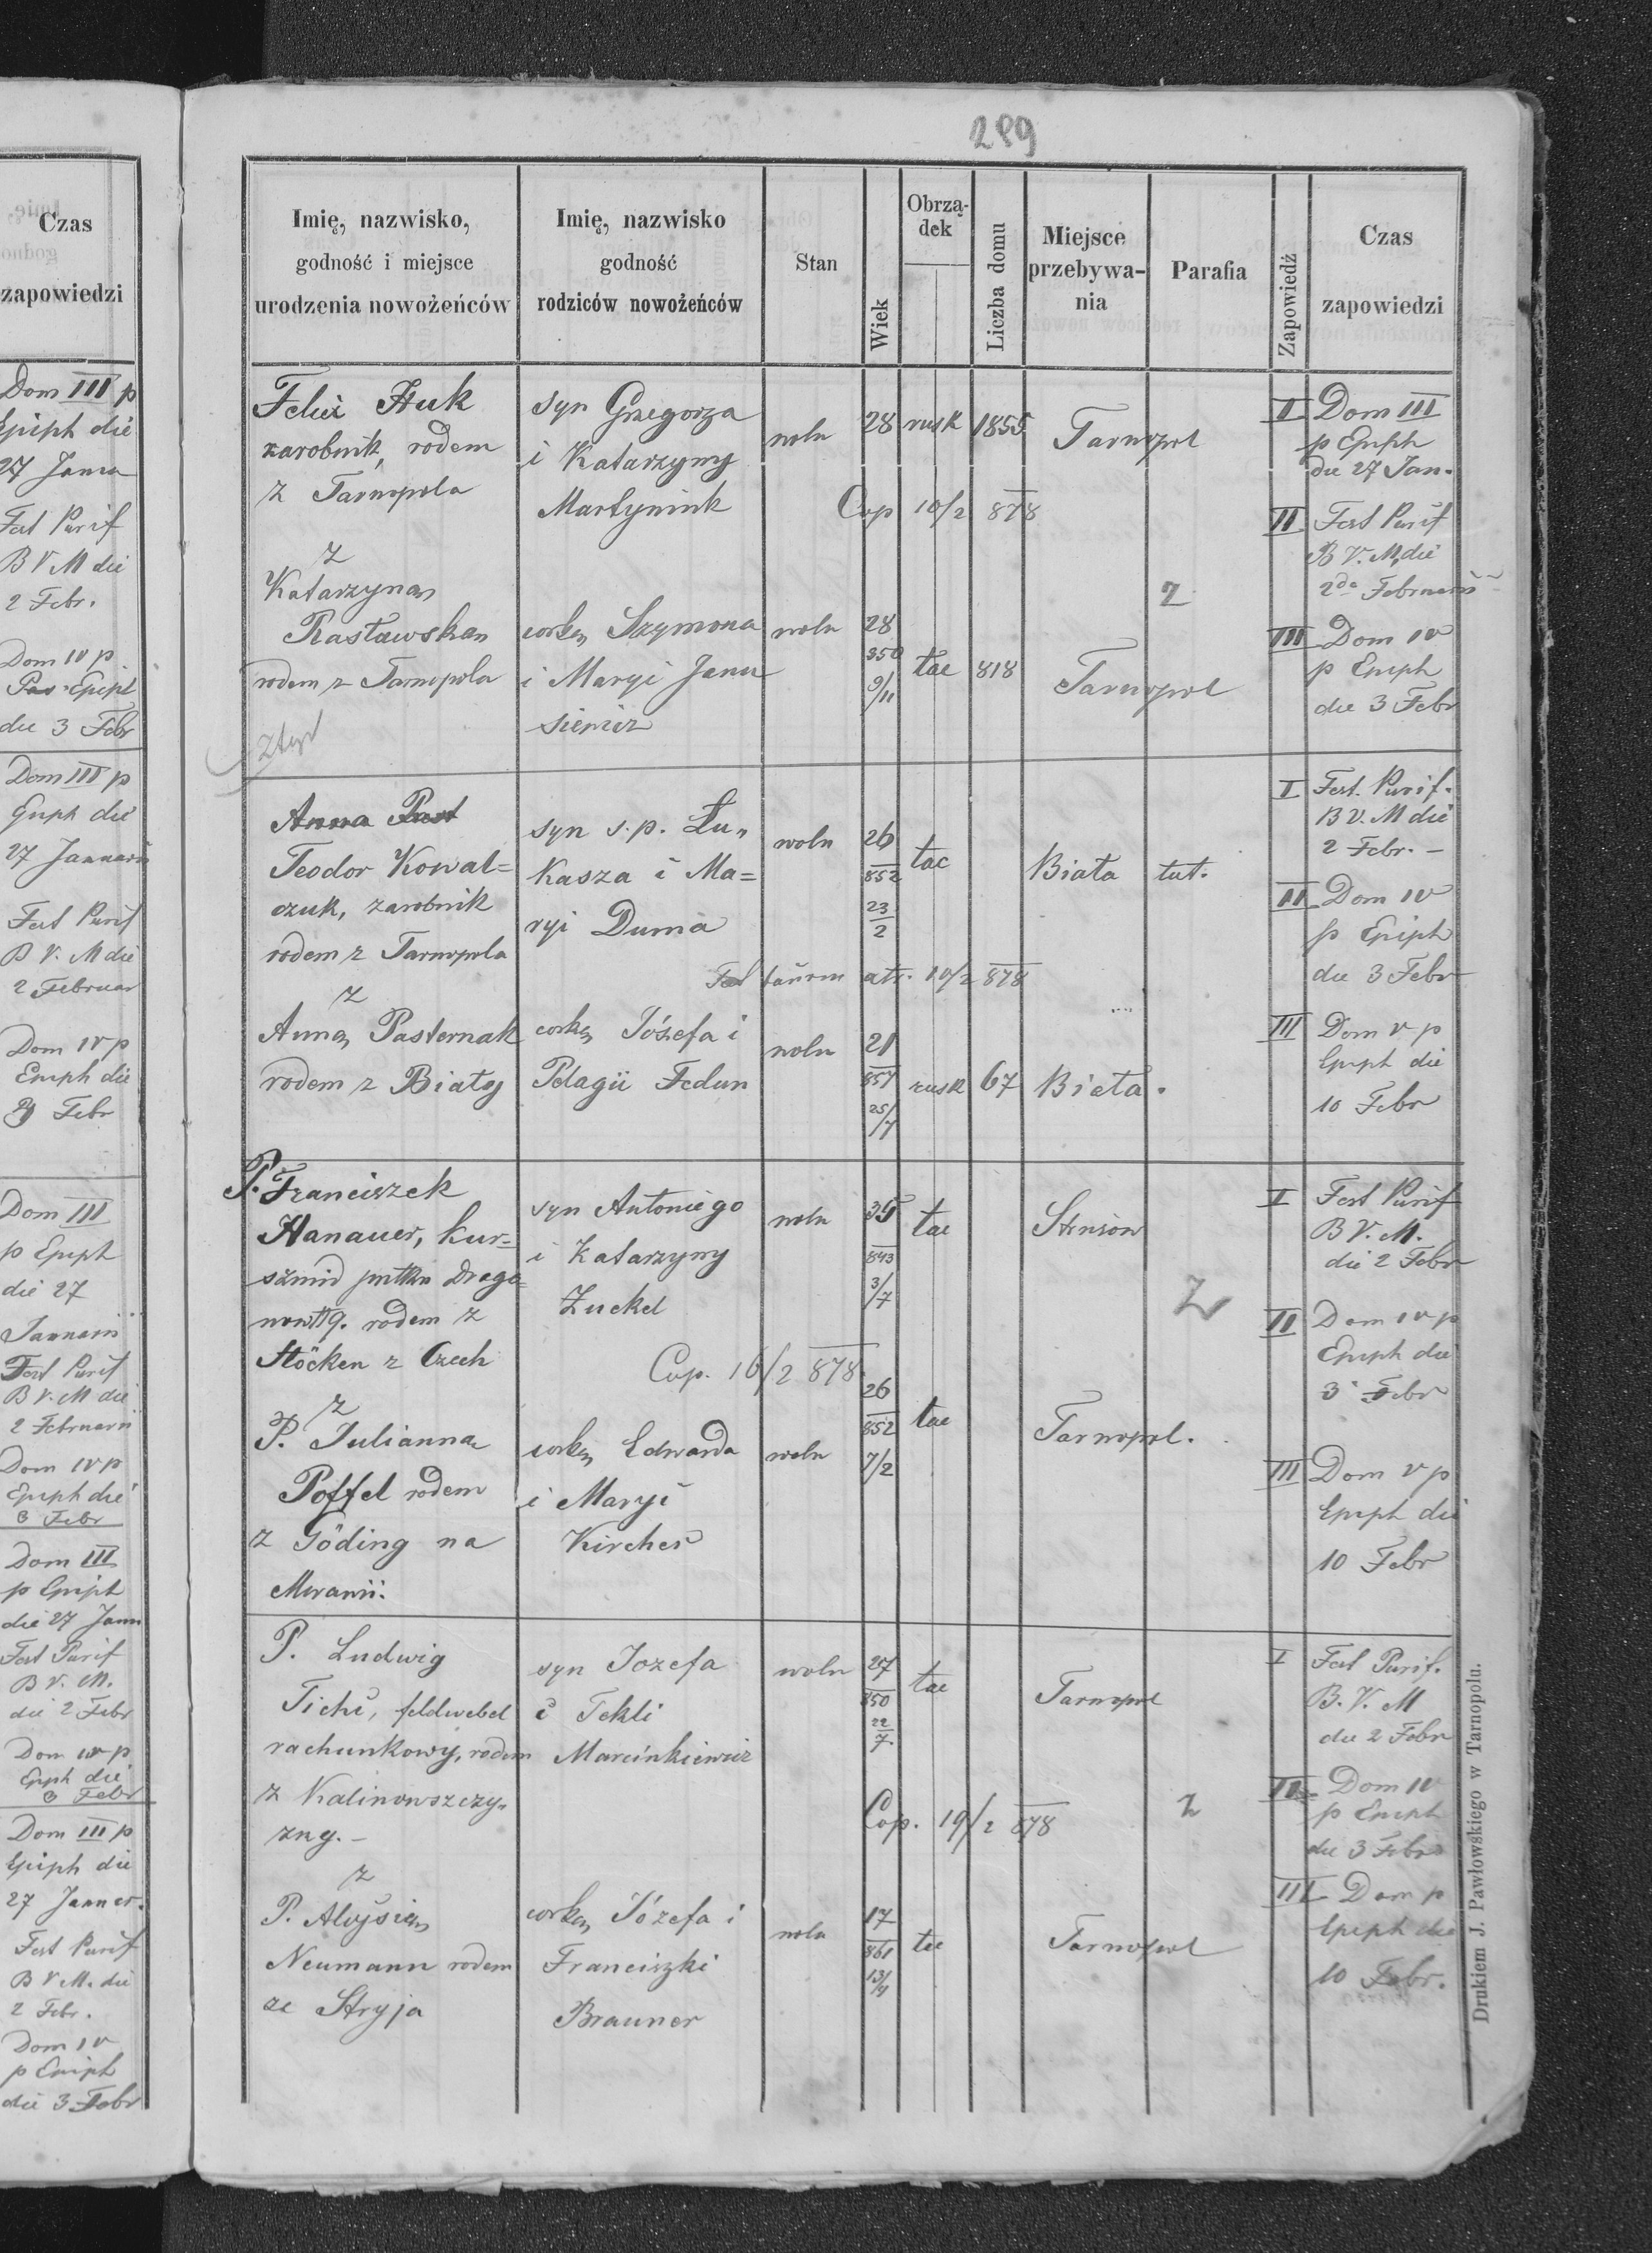 289
Czas
zapowiedzi
Dom III p
Epiph die
27 Janua
Fest Purif
B V M die
2 Febr.
Dom IV p
Epiph
die 3 Febr
Dom III p
Epiph die
27 Januarii
Fest Purif
B V. M die
2 Februar
Dom IV p
Epiph die
3 Febr
Dom III
p Epiph
die 27
Januarii
Fest Purif
B V. M die
2 Februarii
Dom IV p
Epiph die
3 Febr
Dom III
p Epiph
die 27 Janu
Fest Purif
B V. M.
die 2 Febr
Dom IV p
Epiph die
3 Febr
Dom III p
Epiph die
27 Januar.
Fest Purif
B V M. die
2 Febr.
Dom IV
p Epiph
die 3 Febr
Imię, nazwisko,
godność i miejsce
urodzenia nowożeńców
Imię, nazwisko
godność
rodziców nowożeńców
Stan
Wiek
Obrzą-
dek
Liczba domu
Miejsce
przebywa-
nia
Parafia
Zapowiedź
Czas
zapowiedzi
Felix Huk
zarobnik, rodem
z Tarnopola
z
Katarzyna
Rastawska
rodem z Tarnopola
syn Grzegorza
i Katarzyny
Martyniuk
corka Szymona
i Maryi Janu
siewicz
woln
woln
28
28
850
9/11
rusk
tac
1855
818
Cop 10/2 878
Tarnopol
Tarnopol
Z
II Dom III
p Epiph
die 27 Jan.
II Fest Purif
B V. M. die
2da Februarii
III Dom IV
p Epiph
die 3 Febr
Anna Past
Teodor Kowal=
czuk, zarobnik
rodem z Tarnopola
z
Anna Pasternak
rodem z Biały
syn s. p. Łu„
kasza i Ma=
ryi Duma
corka Józefa i
Pelagii Fedun
woln
woln
26
852
23
2
21
857
25/7
tac
rusk
67
10/2 878
Biała
tut.
Biała.
I Fest. Purif.
B V. M die
2 Febr. –
II Dom IV
p Epiph
die 3 Febr
III Dom V p
Epiph die
10 Febr
P. Franciszek
Hanauer, kur=
szmid pułku Drago
now 9. rodem z
Stöcken z Czech
z
P. Julianna
Poffel rodem
z Göding na
Morawii.
syn Antoniego
i Katarzyny
Zuckel
Cop. 16/2 878
corka Edwarda
i Maryi
Kircher
woln
woln
35
843
3/7
26
852
7/2
tac
tac
Tarnopol.
Z
I Fest Purif
B V. M.
die 2 Febr
II Dom IV p
Epiph die
3 Febr
III Dom V p
Epiph die
10 Febr
P. Ludwig
Tichi, feldwebel
rachunkowy, rodem
z Kalinowszczy„
zny. –
z
P. Aloysia
Neumann rodem
ze Stryja
syn Jozefa
i Tekli
Marcinkiewicz
Cop. 19/2 878
corka Józefa i
Franciszki
Brauner
woln
woln
27
850
22
7.
17
861
13/4
tac
tac
Tarnopol
Tarnopol
Z
I Fest Purif.
B. V. M
die 2 Febr
II Dom IV
p Epiph
die 3 Febr
III Dom p
Epiph die
10 Febr.
Drukiem J. Pawłowskiego w Tarnopolu.